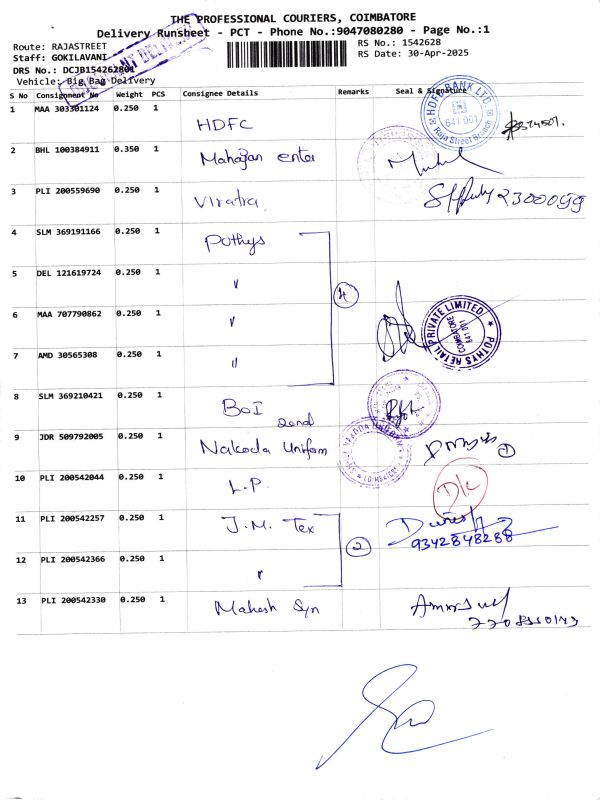 THE PROFESSIONAL COURIERS, COIMBATORE
Delivery Runsheet - PCT - Phone No.:9047080280 - Page No.:1
Route: RAJASTREET
RS No.: 1542628
Staff: GOKILAVANI
RS Date: 30-Apr-2025
DRS No.: DCJB154262801
Vehicle: Big Bag Delivery
S No Consignment No Weight PCS Consignee Details Remarks Seal & Signature
1 MAA 303301124 0.250 1 HDFC
HDFC BANK LTD.
641 001
Raja Street Branch
2 BHL 100384911 0.350 1 Mahajan enter
3 PLI 200559690 0.250 1 Viratra
4 SLM 369191166 0.250 1 Pothys
5 DEL 121619724 0.250 1 〃
4
6 MAA 707790862 0.250 1 〃
POTHYS RETAIL PRIVATE LIMITED
COIMBATORE
641 001
7 AMD 30565308 0.250 1 〃
8 SLM 369210421 0.250 1 BOI
2nd
9 JDR 509792005 0.250 1 Nakoda Uniform
1
10 PLI 200542044 0.250 1 L.P. D/L
11 PLI 200542257 0.250 1 J.M. Tex
2
9342848288
12 PLI 200542366 0.250 1 〃
13 PLI 200542330 0.250 1 Mahesh Syn